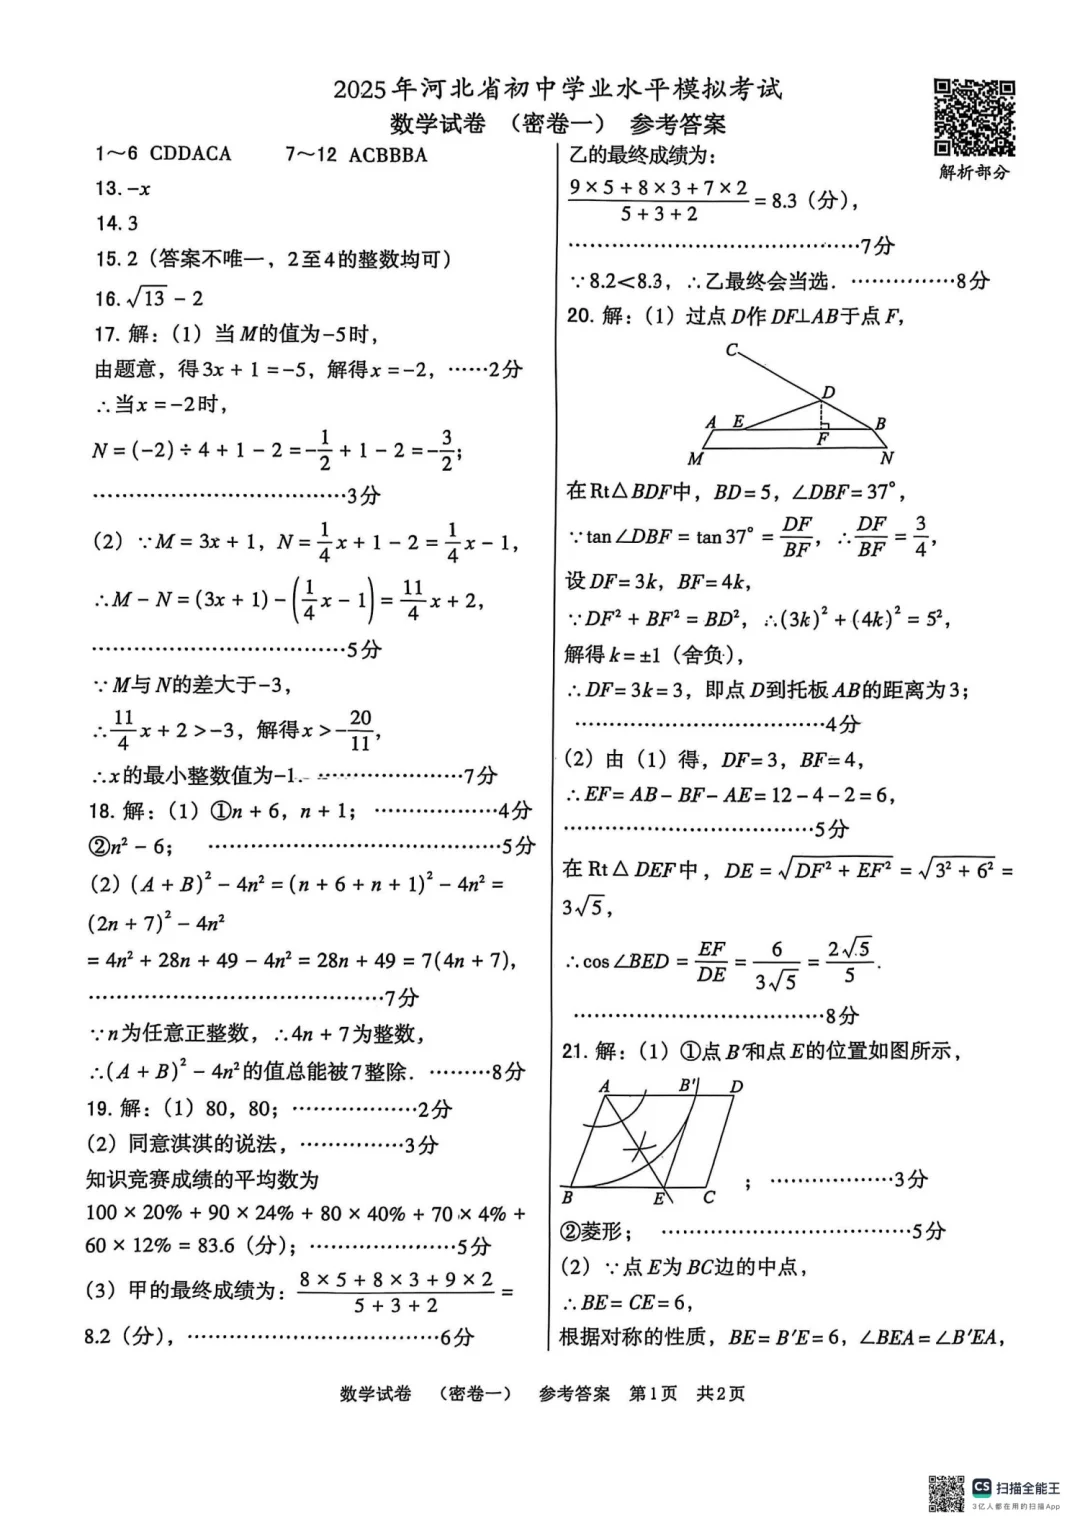 2025年河北省初中学业水平模拟考试
数学试卷 （密卷一） 参考答案
解析部分
1～6 CDDACA 7～12 ACBBBA
13. −x
14. 3
15. 2（答案不唯一，2至4的整数均可）
16. √13 − 2
17. 解：（1）当M的值为−5时，
由题意，得3x + 1 = −5，解得x = −2，……2分
∴当x = −2时，
N = (−2) ÷ 4 + 1 − 2 = −1/2 + 1 − 2 = −3/2；
………………………………3分
（2）∵M = 3x + 1，N = 1/4 x + 1 − 2 = 1/4 x − 1，
∴M − N = (3x + 1) − (1/4 x − 1) = 11/4 x + 2，
………………………………5分
∵M与N的差大于−3，
∴11/4 x + 2 > −3，解得x > −20/11，
∴x的最小整数值为−1. …………………7分
18. 解：（1）①n + 6，n + 1；………………4分
②n² − 6； ……………………………………5分
（2）(A + B)² − 4n² = (n + 6 + n + 1)² − 4n² =
(2n + 7)² − 4n²
= 4n² + 28n + 49 − 4n² = 28n + 49 = 7(4n + 7)，
……………………………………7分
∵n为任意正整数，∴4n + 7为整数，
∴(A + B)² − 4n²的值总能被7整除. ………8分
19. 解：（1）80，80；………………2分
（2）同意淇淇的说法，……………3分
知识竞赛成绩的平均数为
100 × 20% + 90 × 24% + 80 × 40% + 70 × 4% +
60 × 12% = 83.6（分）；…………………5分
（3）甲的最终成绩为：(8 × 5 + 8 × 3 + 9 × 2)/(5 + 3 + 2) =
8.2（分），………………………………6分
乙的最终成绩为：
(9 × 5 + 8 × 3 + 7 × 2)/(5 + 3 + 2) = 8.3（分），
……………………………………7分
∵8.2＜8.3，∴乙最终会当选. ……………8分
20. 解：（1）过点D作DF⊥AB于点F，
C
D
A E B
F
M N
在Rt△BDF中，BD = 5，∠DBF = 37°，
∵tan∠DBF = tan 37° = DF/BF，∴DF/BF = 3/4，
设DF = 3k，BF = 4k，
∵DF² + BF² = BD²，∴(3k)² + (4k)² = 5²，
解得k = ±1（舍负），
∴DF = 3k = 3，即点D到托板AB的距离为3；
………………………………4分
（2）由（1）得，DF = 3，BF = 4，
∴EF = AB − BF − AE = 12 − 4 − 2 = 6，
………………………………5分
在Rt△DEF中，DE = √(DF² + EF²) = √(3² + 6²) =
3√5，
∴cos∠BED = EF/DE = 6/(3√5) = 2√5/5.
………………………………8分
21. 解：（1）①点B′和点E的位置如图所示，
A B′ D
B E C
；………………3分
②菱形； ………………………………5分
（2）∵点E为BC边的中点，
∴BE = CE = 6，
根据对称的性质，BE = B′E = 6，∠BEA = ∠B′EA，
数学试卷 （密卷一） 参考答案 第1页 共2页
CS 扫描全能王
3亿人都在用的扫描App